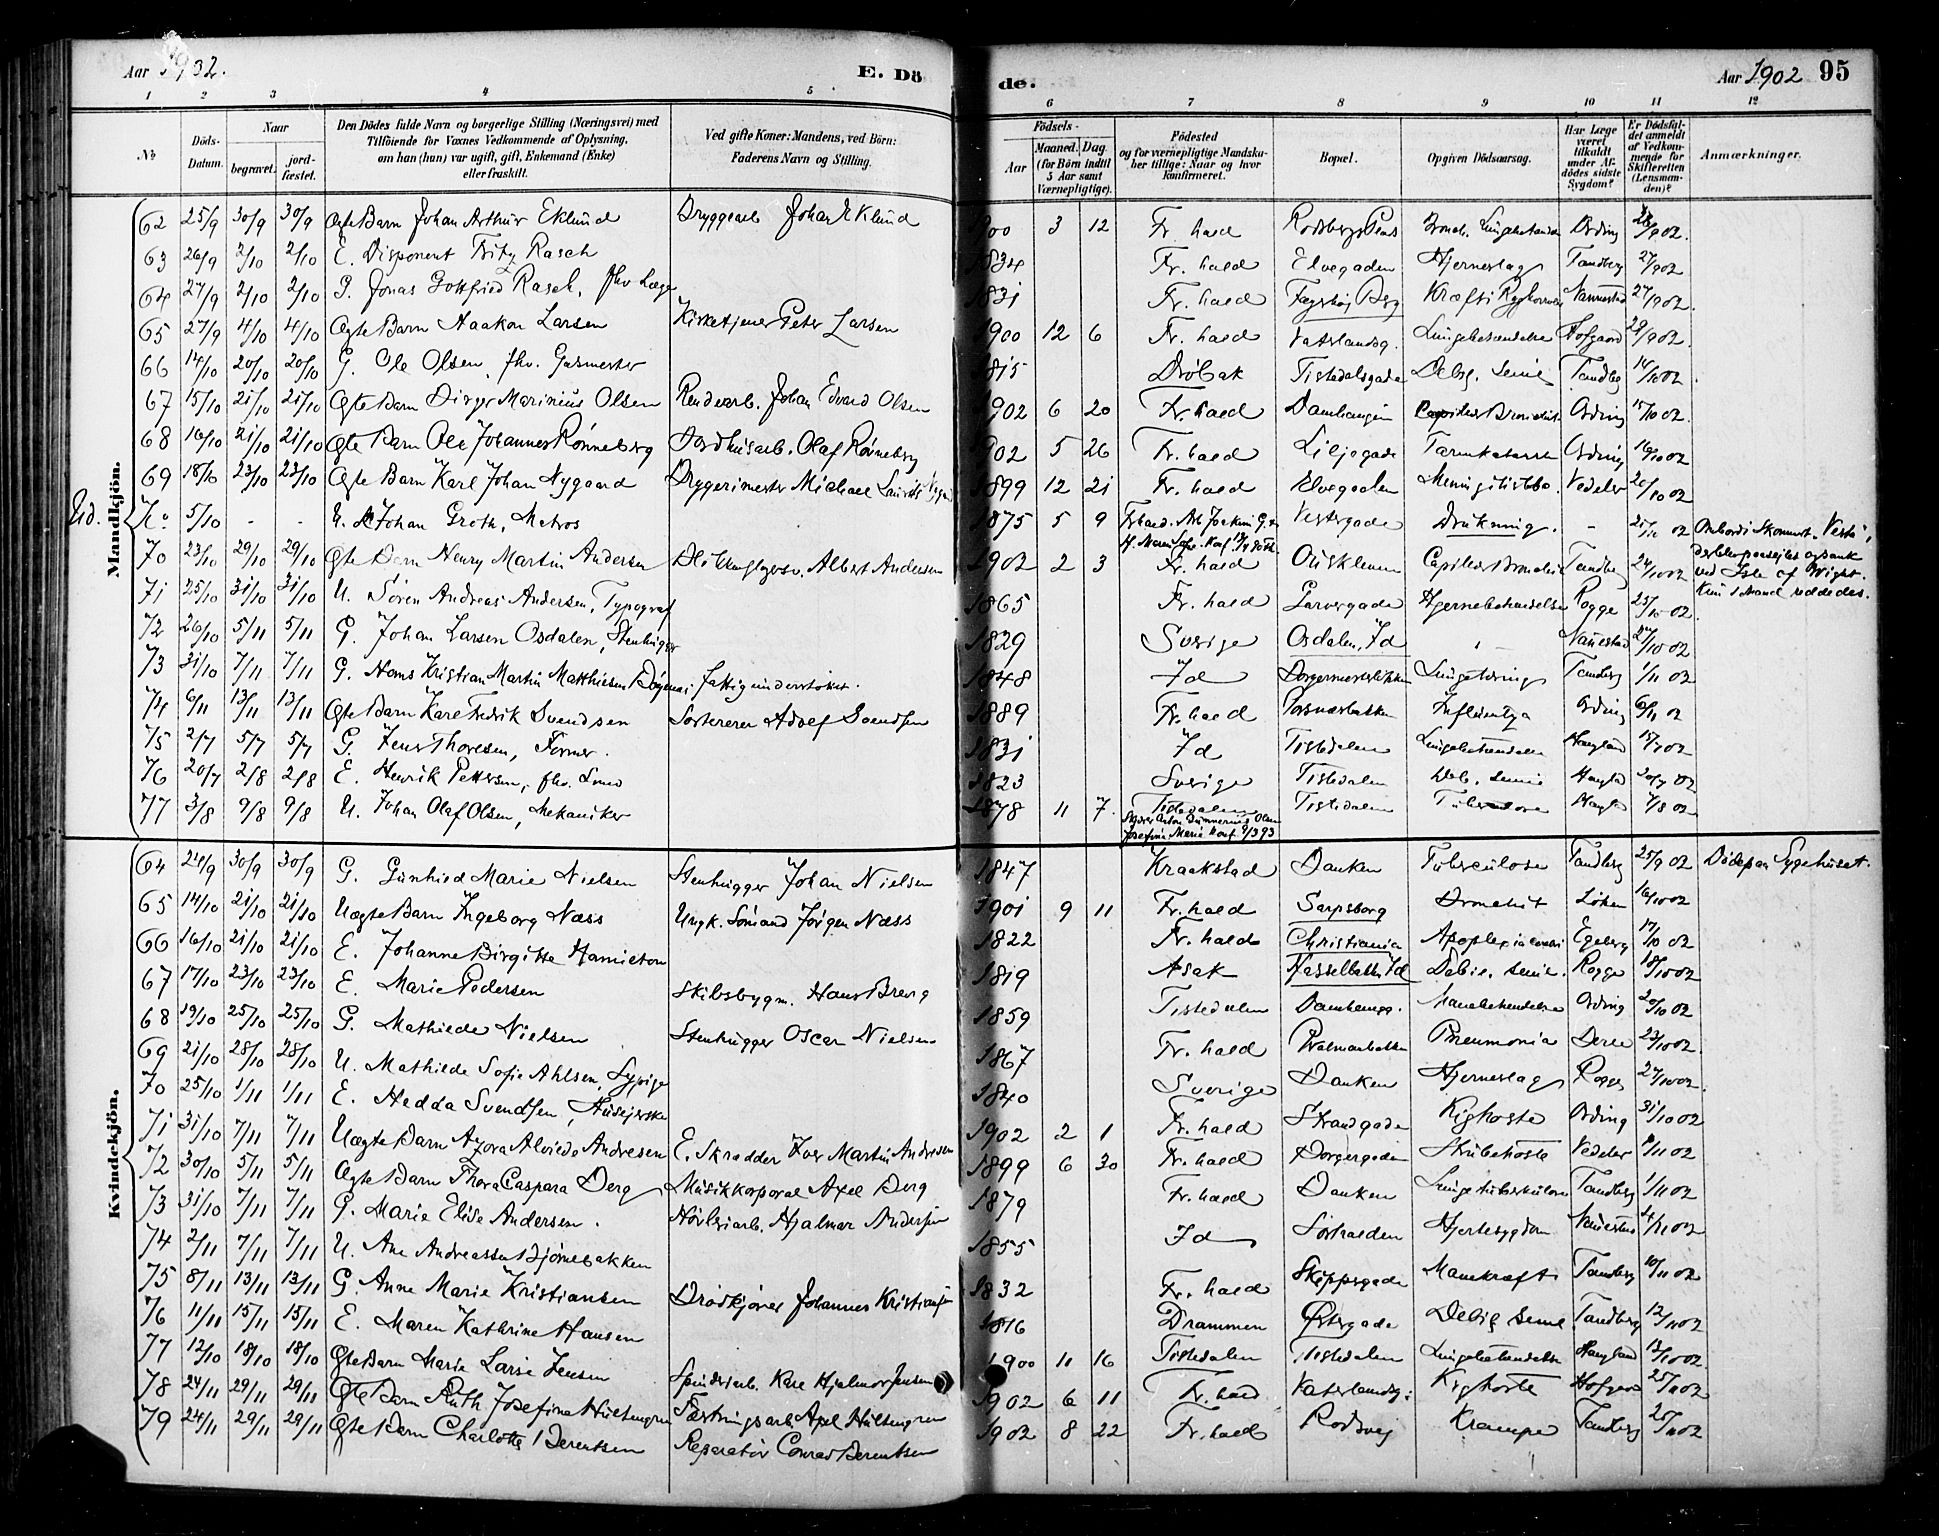 Aar 1902.
E. Dö
de.
Aar 1902 95
1 2 3 4 5 6 7 8 9 10 11 12
No
Döds-Datum.
Naar
begravet.
jord-fæstet.
Den Dödes fulde Navn og borgerlige Stilling (Næringsvei) med
Tilföiende for Voxnes Vedkommende af Oplysning,
om han (hun) var ugift, gift, Enkemand (Enke)
eller fraskilt.
Ved gifte Koner: Mandens, ved Börn:
Faderens Navn og Stilling.
Födsels-
Aar
Maaned. Dag.
(for Börn indtil
5 Aar samt
Værnepligtige).
Födested
og for værnepligtige Mandska-
ber tillige: Naar og hvor
konfirmeret.
Bopæl.
Opgiven Dödsaarsag.
Har Læge
været
tilkaldt
under Af-
dödes sidste
Sygdom?
Er Dödsfal-
det anmeldt
af Vedkom-
mende for
Skifteretten
(Lensman-
den)?
Anmærkninger.
Mandkjön.
62 25/9 30/9 30/9 Ægte Barn Johan Arthur Eklund Bryggearb Johan Eklund 1900 3 12 Fr. hald Ording 28/9 02.
63 26/9 2/10 2/10 E. Disponent Fritz Rasch 1834 Fr. hald Elvegaden Hjerneslag Tandberg 27/9 02
64 27/9 2/10 2/10 G. Jonas Gottfried Rasch, fhv Læge 1831 Fr. hald Nannestad 27/9 02
65 27/9 4/10 4/10 Ægte Barn Haakon Larsen Kirketjener Peter Larsen 1900 12 6 Fr. hald Vaterlandsg. Lungebetændelse Hofgaard 29/9 02
66 14/10 20/10 20/10 G. Ole Olsen, fhv. Gasmester 1815 Dröbak Tistedalsgade Debil. Senil Tandberg 14/10 02
67 15/10 21/10 21/10 Ægte Barn Birger Marinius Olsen Rendearb. Johan Edvard Olsen 1902 6 20 Fr. hald Damhaugen Capillær Bronchit Ording 15/10 02.
68 16/10 21/10 21/10 Ægte Barn Ole Johannes Rønneberg Olaf Rønneberg 1902 5 26 Fr. hald Liljegade Tarmkatarrh Ording 16/10 02
69 18/10 23/10 23/10 Ægte Barn Karl Johan Nygaard Bryggerimester Michael 1899 12 21 Fr. hald Elvegaden Vedeler 20/10 02
Ud. No 5/10 - - U. Johan Groth, Matros 1875 5 9 Vestergade Drukning. - 21/10 02
70 23/10 29/10 29/10 Ægte Barn Henry Martin Andersen Albert Andersen 1902 2 3 Fr. hald Ouskleven Capillær Bronchit Tandberg 24/10 02
ved Isle of Wight.
Kun 1 Mand reddedes.
71 25/10 31/10 31/10 U. Sören Andreas Andersen, Typograf 1865 Fr. hald Garvergade Hjernebetændelse Rogge 25/10 02.
72 26/10 5/11 5/11 G. Johan Larsen Osdalen, Stenhugger 1829 Sverige Osdalen, Id Nannestad 27/10 02
73 31/10 7/11 7/11 G. Hans Kristian Martin Matthiesen fattigunderstöttet. 1848 Id Borgermesterløkken Lungetæring Tandberg 1/11 02
74 6/11 13/11 13/11 Ægte Barn Karl Fredrik Svendsen Sorterer Adolf Svendsen 1889 Fr. hald Influenza Ording 6/11 02
75 2/7 5/7 5/7 G. Jens Thoresen, Former. 1831 Id Tistedalen Lungebetændelse Haugland 15/7 02
76 20/7 2/8 2/8 E. Henrik Pettersen, fhv. Smed 1823 Sverige Tistedalen Deb. senil 20/7 02
77 3/8 9/8 9/8 U. Johan Olaf Olsen, Mekaniker 1878 11 7 Tistedalen Tistedalen Tuberculose 7/8 02
Kvindekjön.
64 24/9 30/9 30/9 G. Gunhild Marie Nielsen Stenhugger Johan Nielsen 1847 Kraakstad Banken Tuberculose Tandberg 25/9 02 Döde paa Sygehuset.
65 14/10 21/10 21/10 Uægte Barn Ingeborg Næss Ungk. Sömand Jörgen Næss 1901 9 11 Fr. hald Sarpsborg Bronchit Löken 16/10 02
66 16/10 21/10 21/10 E. Johanne Birgitte Hamilton 1822 Fr. hald Christiania Egeberg 17/10 02
67 17/10 23/10 23/10 E. Marie Pedersen Skibsbygm. Hans Brevig 1819 Asak Hasselbakk, Id Debil. senil. Rogge 18/10 02
68 19/10 25/10 25/10 G. Mathilde Nielsen Stenhugger Oscar Nielsen 1859 Tistedalen Mavebetændelse Ording 20/10 02
69 21/10 28/10 28/10 U. Mathilde Sofie Ahlsen, Sypige 1867 Fr. hald Pneumonia 23/10 02.
70 25/10 1/11 1/11 E. Hedda Svendsen, Husejerske 1840 Sverige Banken Hjerneslag Rogge 27/10 02.
71 31/10 7/11 7/11 Uægte Barn Azora Alvilde Andresen E. Skrædder Iver Martin Andresen 1902 2 1 Fr. hald Strandgade Kighoste Ording 31/10 02
72 30/10 5/11 5/11 Ægte Barn Thora Caspara Berg Musikkorporal Axel Berg 1899 6 30 Fr. hald Borgergaden Strubehoste Vedeler 1/11 02
73 31/10 7/11 7/11 G. Marie Elise Andersen. Høvleriarb. Hjalmar Andersen 1879 Fr. hald Banken Lungetuberkulose Tandberg 1/11 02
74 2/11 7/11 7/11 U. Ane Andreassen Bjørnebakken 1855 Id Sørhalden Hjertesygdom 4/11 02
75 8/11 13/11 13/11 G. Anne Marie Kristiansen Brødkjører Johannes Kristiansen 1832 Fr. hald Skippergade Mavekræft Tandberg 10/11 02
76 11/11 15/11 15/11 E. Maren Kathrine Hansen 1816 Drammen Østergade Debil. Senil Tandberg 12/11 02
77 12/10 18/10 18/10 Ægte Barn Marie Larise Jensen Spinderiarb. Karl Hjalmar Jensen 1900 11 16 Tistedalen Tistedalen Lungebetændelse Haugland 13/10 02
78 24/11 29/11 29/11 Ægte Barn Ruth Josefine Hultengren Fæstningsarb Axel Hultengren 1902 6 11 Fr. hald Vaterlandsg. Kighoste Hofgaard 25/11 02
79 24/11 29/11 29/11 Ægte Barn Charlotte Berentsen Reparatör Conrad Berentsen 1902 8 22 Fr. hald Rødsvej Krampe Tandberg 25/11 02